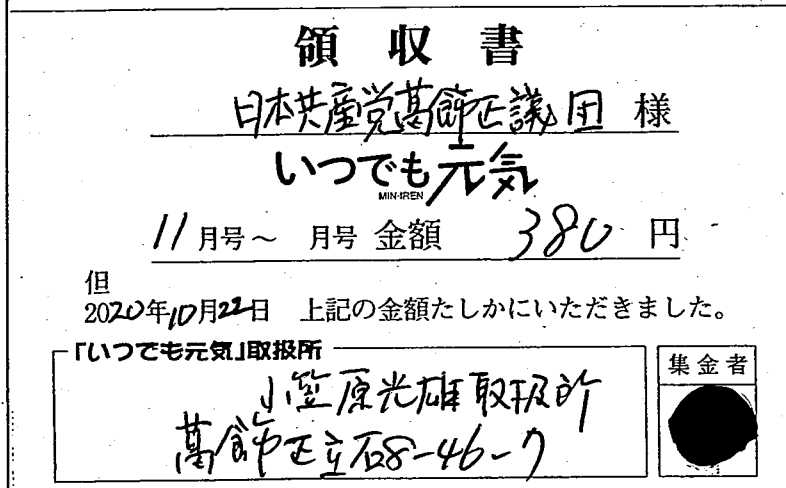 領収書
日本共産党葛飾区議団 様
いつでも元気
MIN-IREN
11月号～ 月号 金額 380 円
但
2020年10月22日 上記の金額たしかにいただきました。
「いつでも元気」取扱所
小笠原光雄取扱所
葛飾区立石8-46-7
集金者